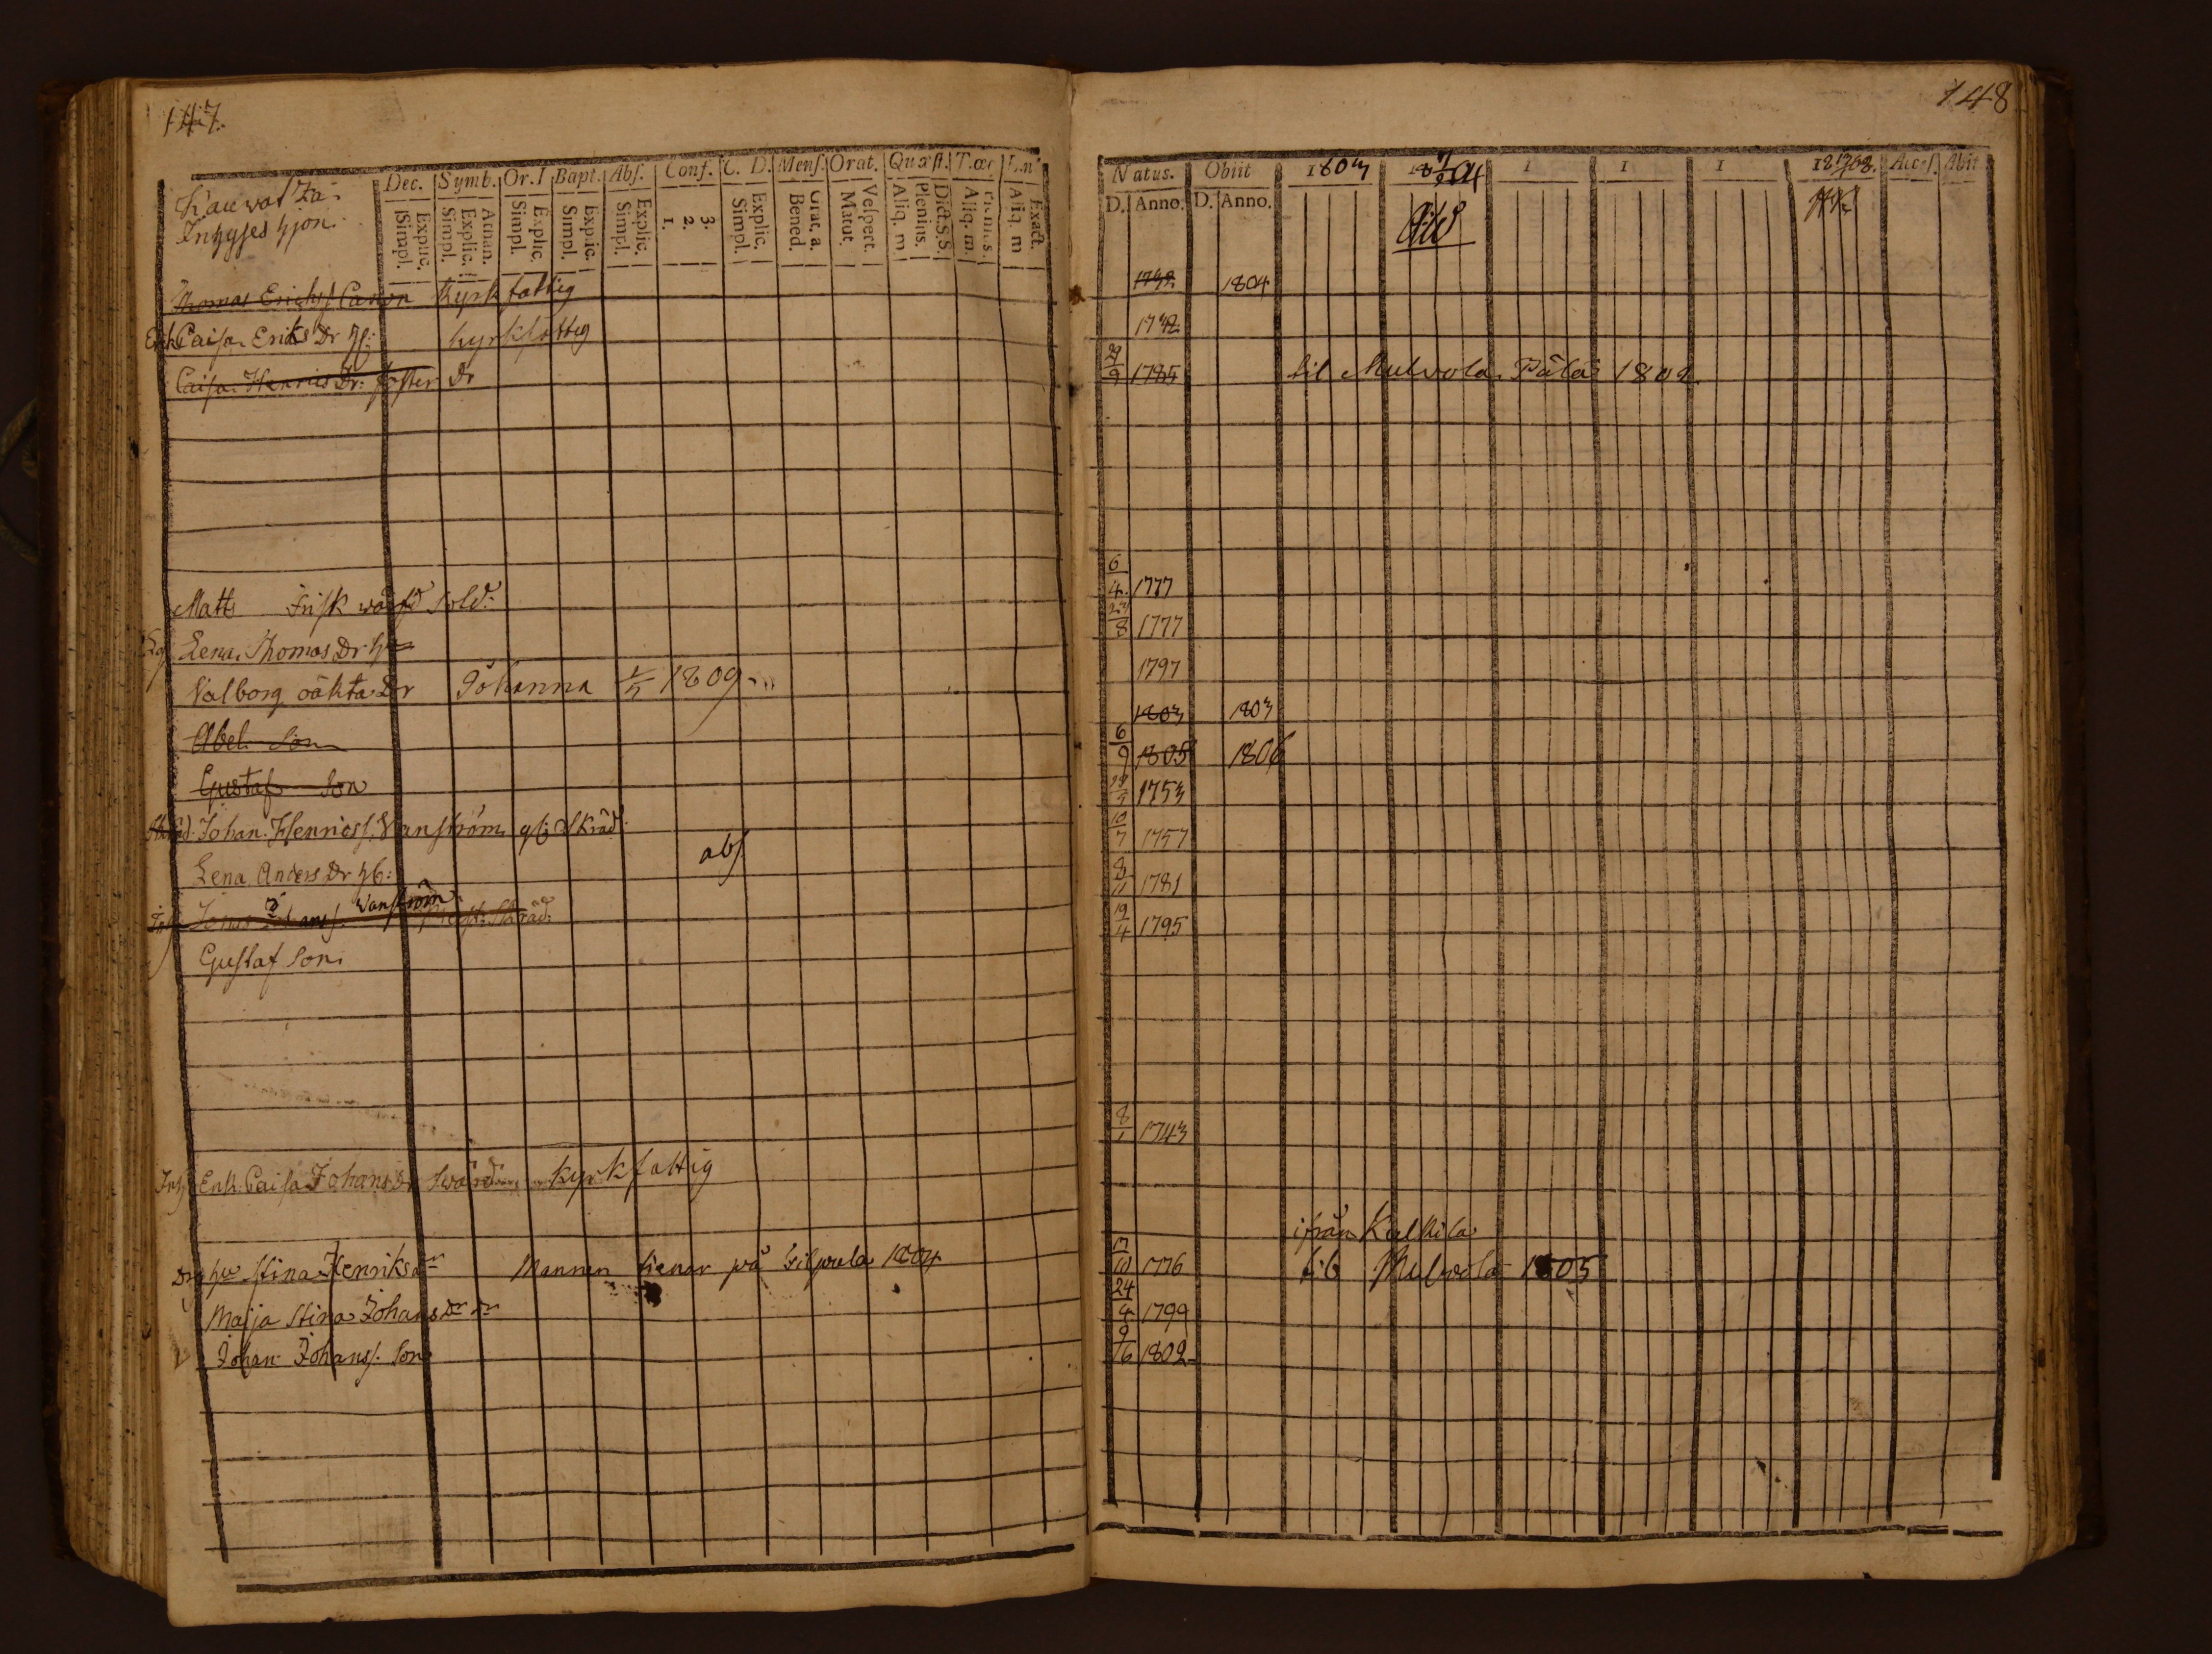 147.
Dec. Symb. Or. Bapt. Abs. Conf. C. D. Mens. Orat. Quæst. T. œc
Inhyses hjon.
Explic. Simpl. Athan. Explic. Simpl. Explic. Simpl. Explic. Simpl. Explic. Simpl. 3. 2. 1. Explic. Simpl. Grat. a. Bened. Vespert. Matut. Dict. S.S. Plenius. Aliq. m Aliq. m. Exact. Aliq. m
Thomas Erichs Kyrkfattig
Enk Caisa Eriks Dr kyrkfattig
Caisa Henrics Dr: foster Dr
Matts Frisk wärfd Sold:
Lena Thomas Dr
Valborg oäkta Dr Johanna 1809
Abel Son
Gustaf Son
Johan Henrics. Wanström Skräd
Lena Anders Dr abs
Jonas Johans. Wanström
Gustaf Son
Inh Enk. Caisa Johans Dr Swärd kyrkfattig
Stina Henriks dr Mannen tienar på 1804
Maija Stina Johans dr
Johan Johans. Son
148
Natus. Obiit 1803 18 04 I I I 18 Access. Abit
D. Anno. D. Anno.
1804
1742
9 1785 til Mulvola Pålä 1802
6/4 1777
8 1777
1797
1803 1803
6/9 1805 1806
1753
10/7 1757
8/11 1781
19/4 1795
8/1 1743
ifrån Kulkila
17/10 1776 Mulvola 1805
24/4 1799
9/6 1802